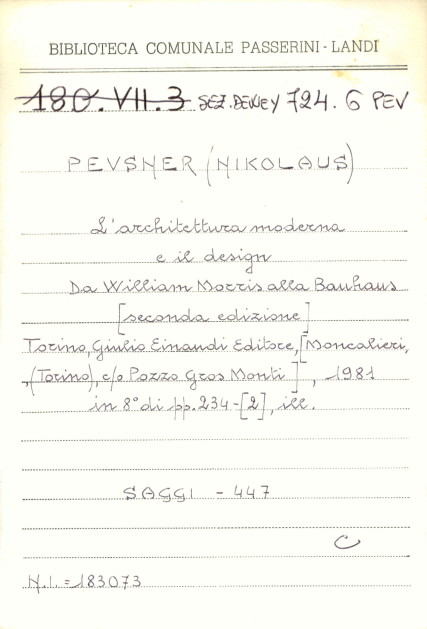 BIBLIOTECA COMUNALE PASSERINI - LANDI
180.VII.3 SEZ.DEWEY 724.6 PEV
PEVSNER (NIKOLAUS)
L'architettura moderna
e il design
Da William Morris alla Bauhaus
[seconda edizione]
Torino, Giulio Einaudi Editore, [Moncalieri,
(Torino), c/o Pozzo Gros Monti], 1981
in 8° di pp. 234-[2], ill.
SAGGI - 447
C
N.I. = 183073